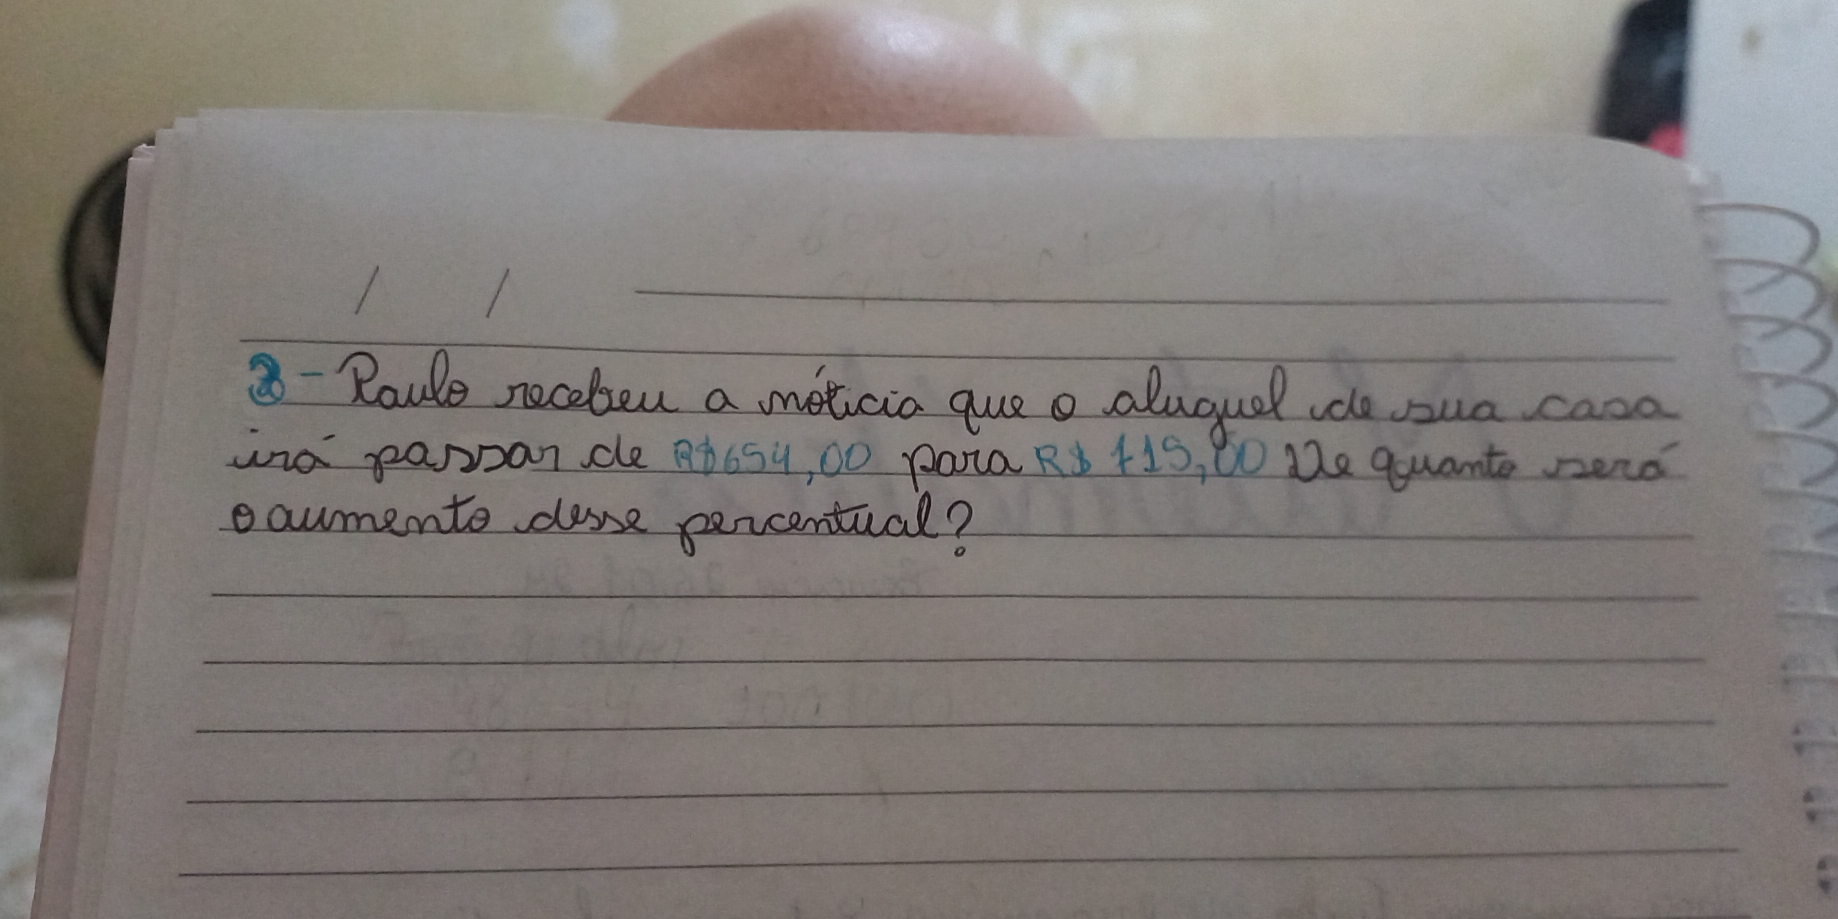 / /
2- Paulo recebeu a nóticia que o aluguel de sua casa
irá passar de R$654,00 para R$ 715,00 De quanto será
o aumento desse percentual?